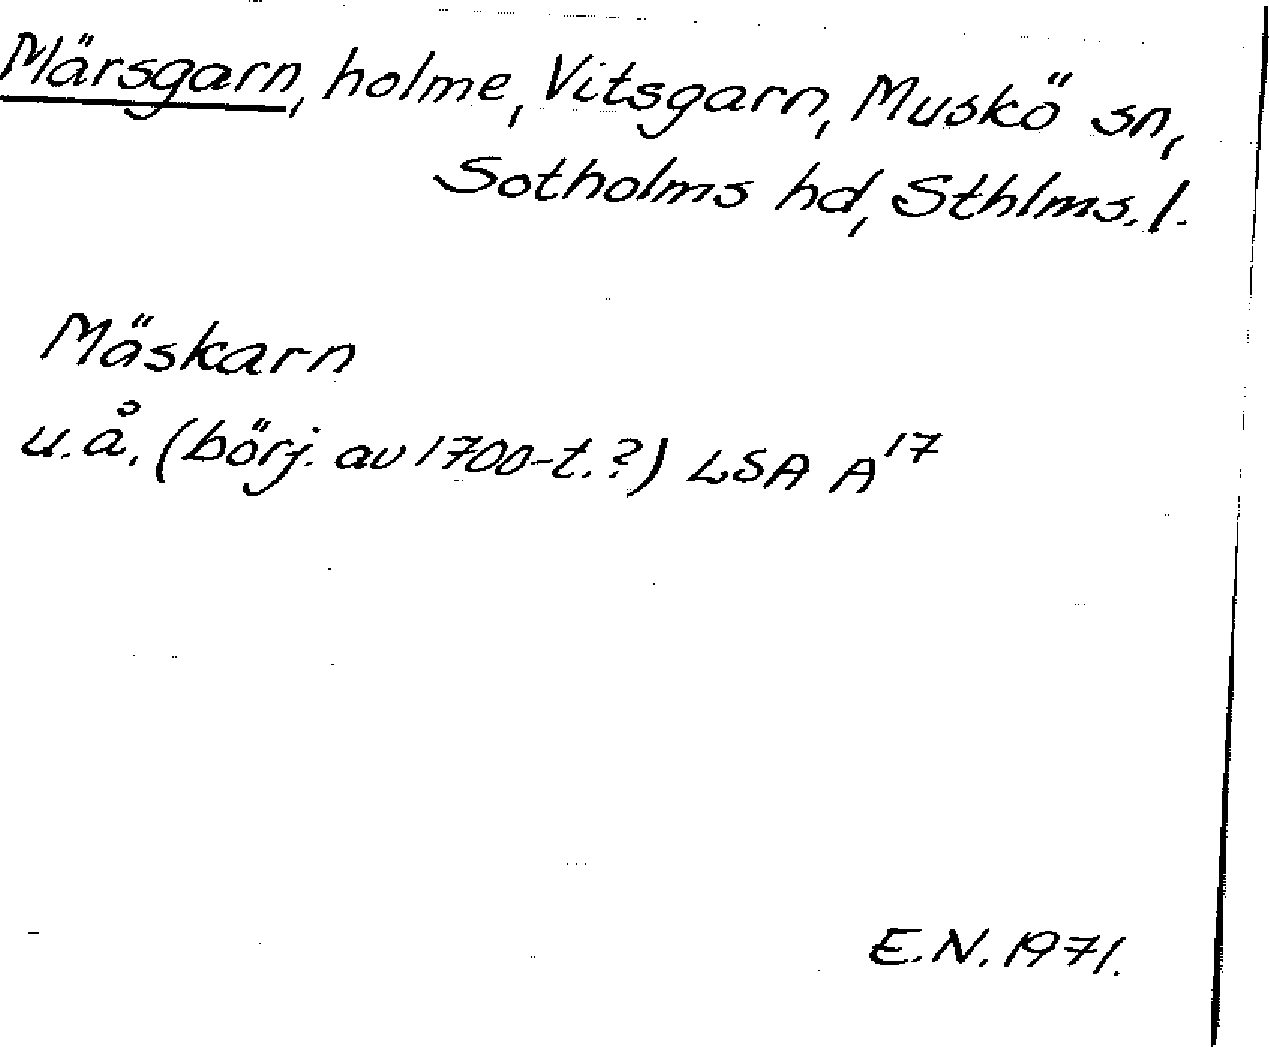 Märsgarn, holme, Vitsgarn, Muskö sn,
Sotholms hd, Sthlms. l.
Mäskarn
u.å. (börj. av 1700-t.?) LSA A17
E.N. 1971.